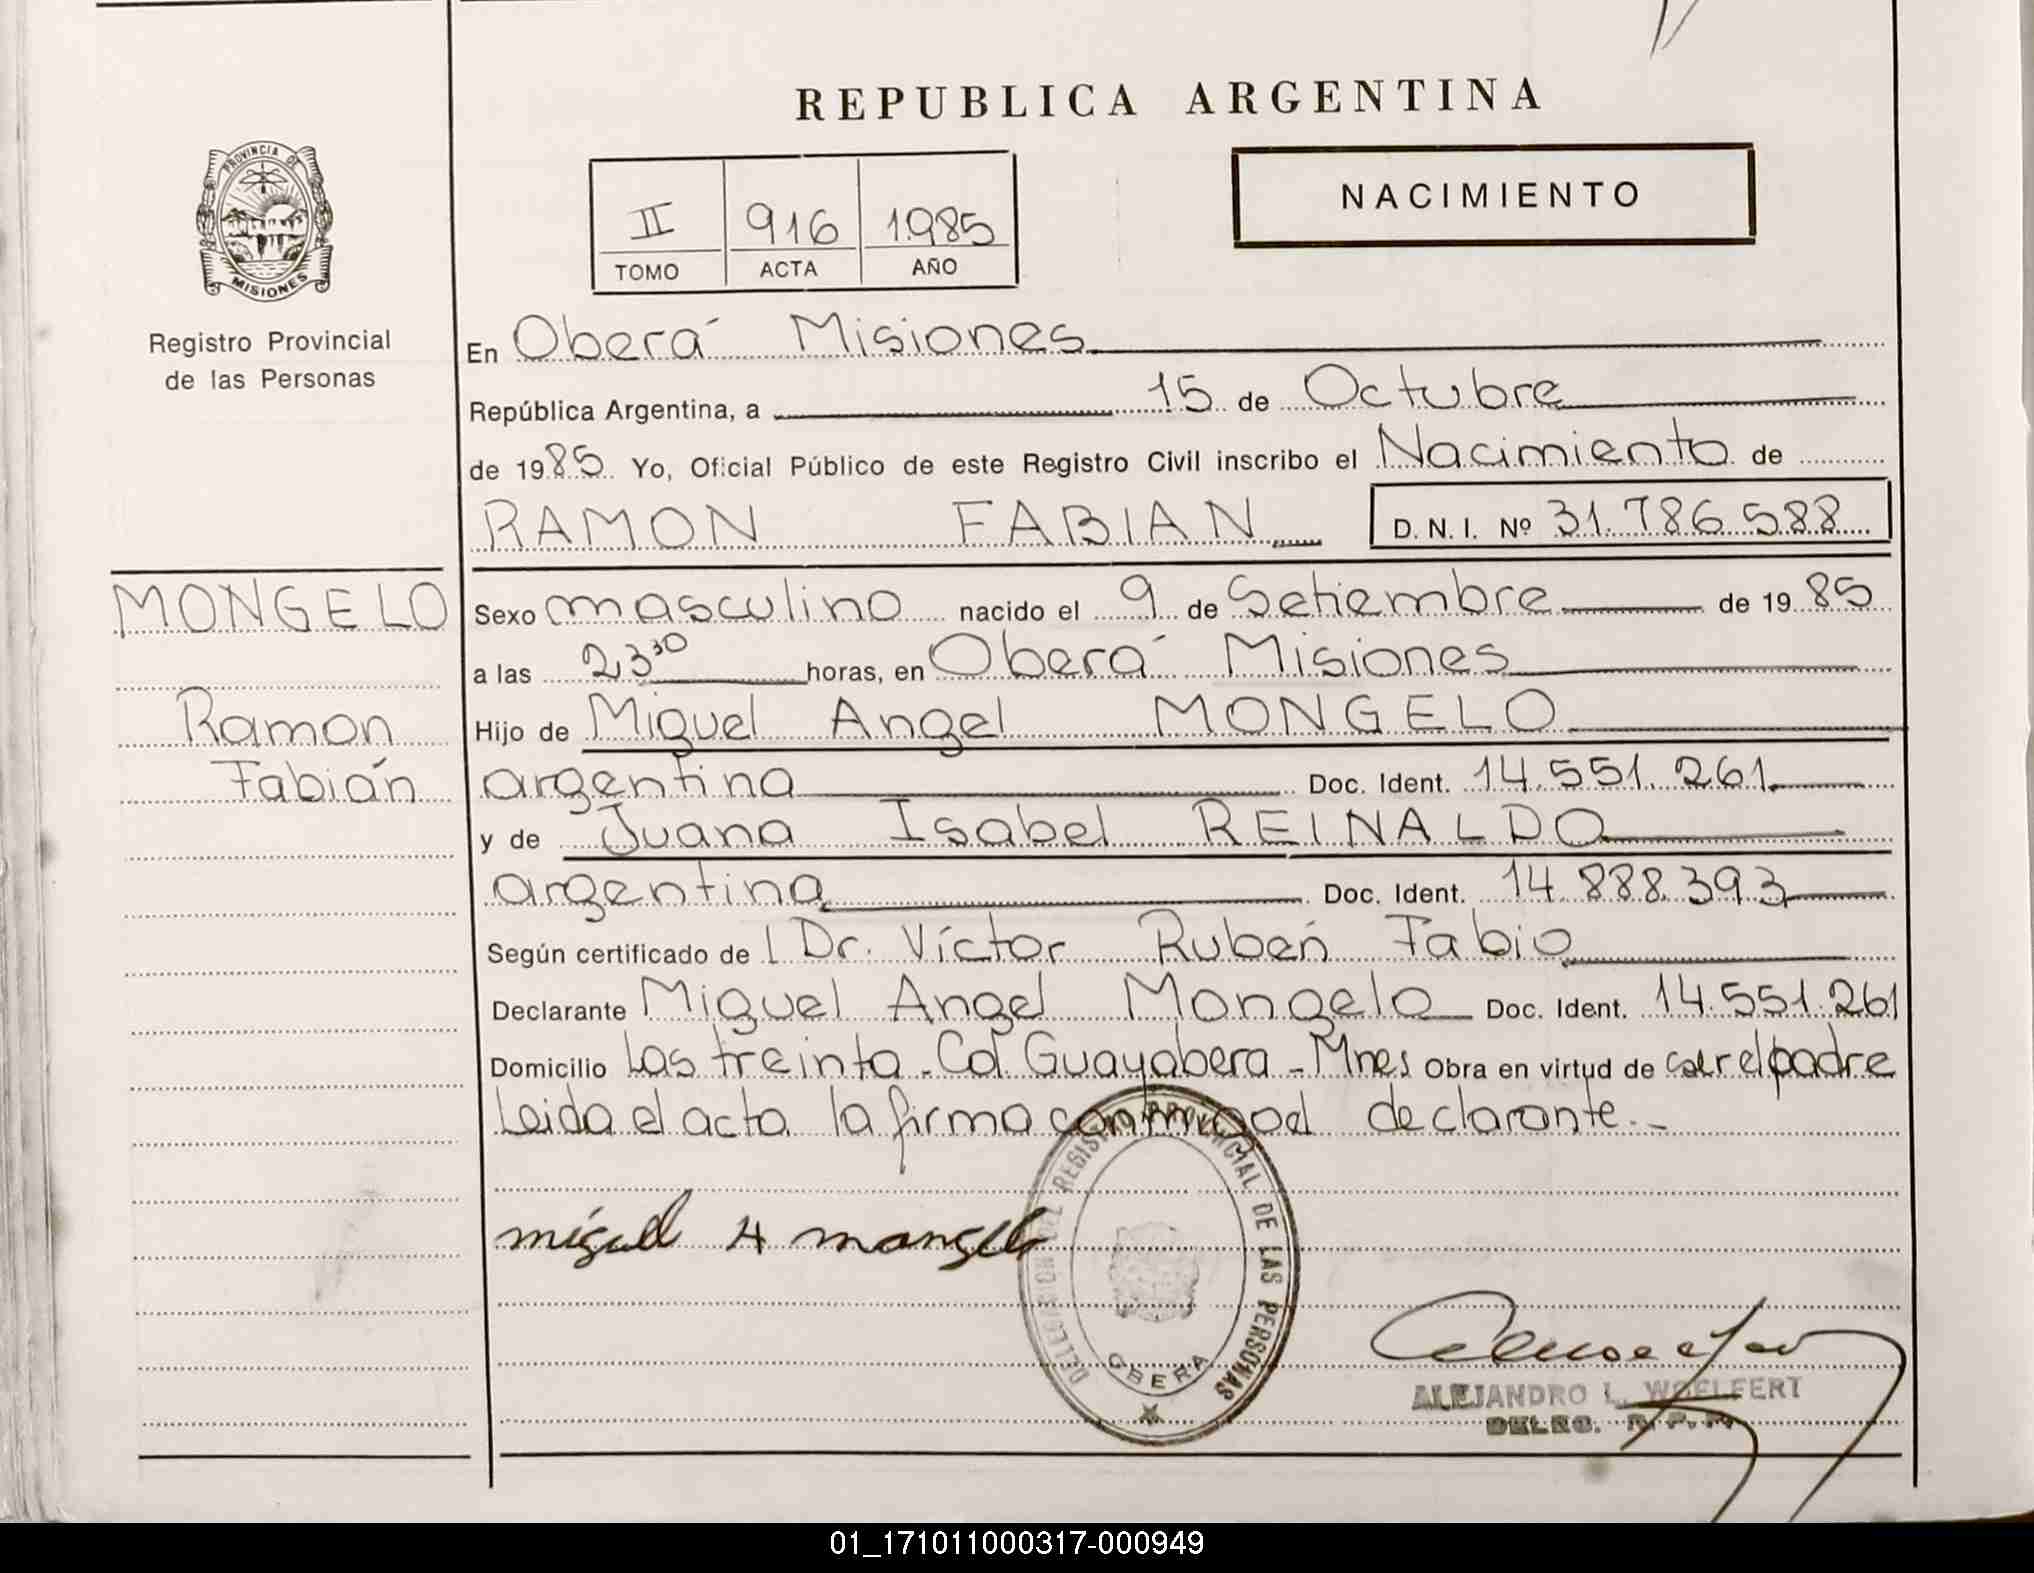 REPUBLICA ARGENTINA
PROVINCIA DE
MISIONES
Registro Provincial
de las Personas
NACIMIENTO
II 916 1985
TOMO ACTA AÑO
En Oberá Misiones
República Argentina, a 15 de Octubre
de 1985 Yo, Oficial Público de este Registro Civil inscribo el Nacimiento de
RAMON FABIAN D. N. I. Nº 31.786.588
MONGELO
Ramon
Fabián
Sexo masculino nacido el 9 de Setiembre de 1985
a las 23³⁰ horas, en Oberá Misiones
Hijo de Miguel Angel MONGELO
argentina Doc. Ident. 14.551.261
y de Juana Isabel REINALDO
argentina Doc. Ident. 14.888.393
Según certificado de l Dr. Víctor Rubeń Fabio
Declarante Miguel Angel Mongelo Doc. Ident. 14.551.261
Domicilio Las treinta - Col. Guayabera - Mnes Obra en virtud de ser el padre
Leida el acta la firma conmigo el declarante.-
miguel A mongelo
DELEGACION DEL REGISTRO PROVINCIAL DE LAS PERSONAS
OBERA
ALEJANDRO L. WOELFERT
DELEG. R. P. P.
01_171011000317-000949